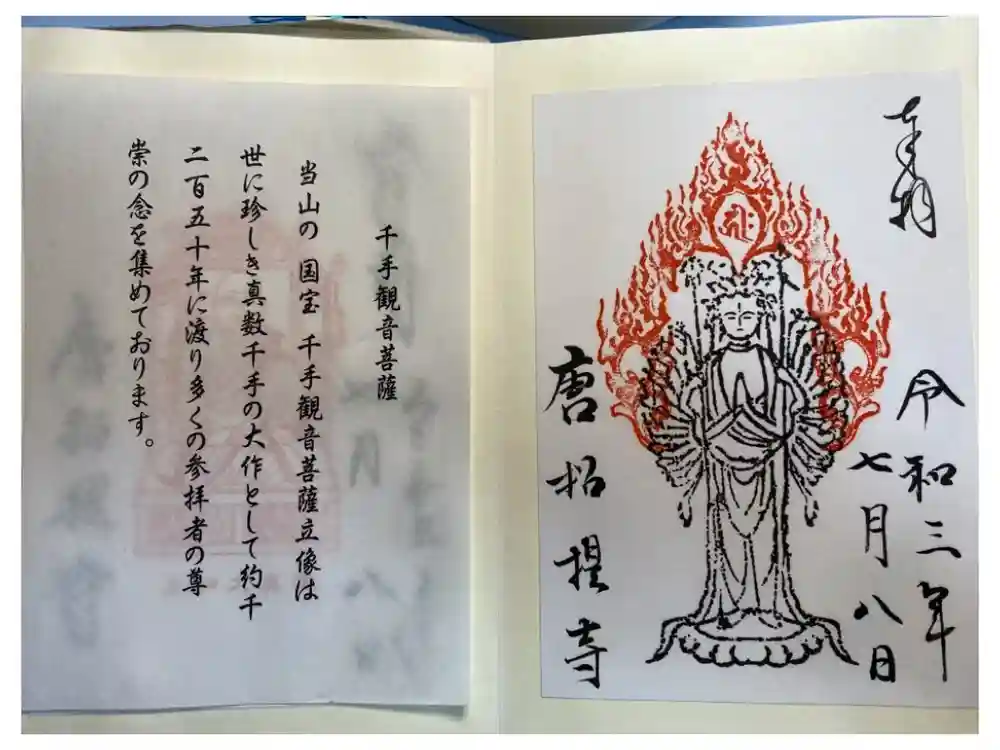 奉拝
令和三年
七月八日
唐招提寺
千手観音菩薩
当山の 国宝 千手観音菩薩立像は
世に珍しき真数千手の大作として約千
二百五十年に渡り多くの参拝者の尊
崇の念を集めております。